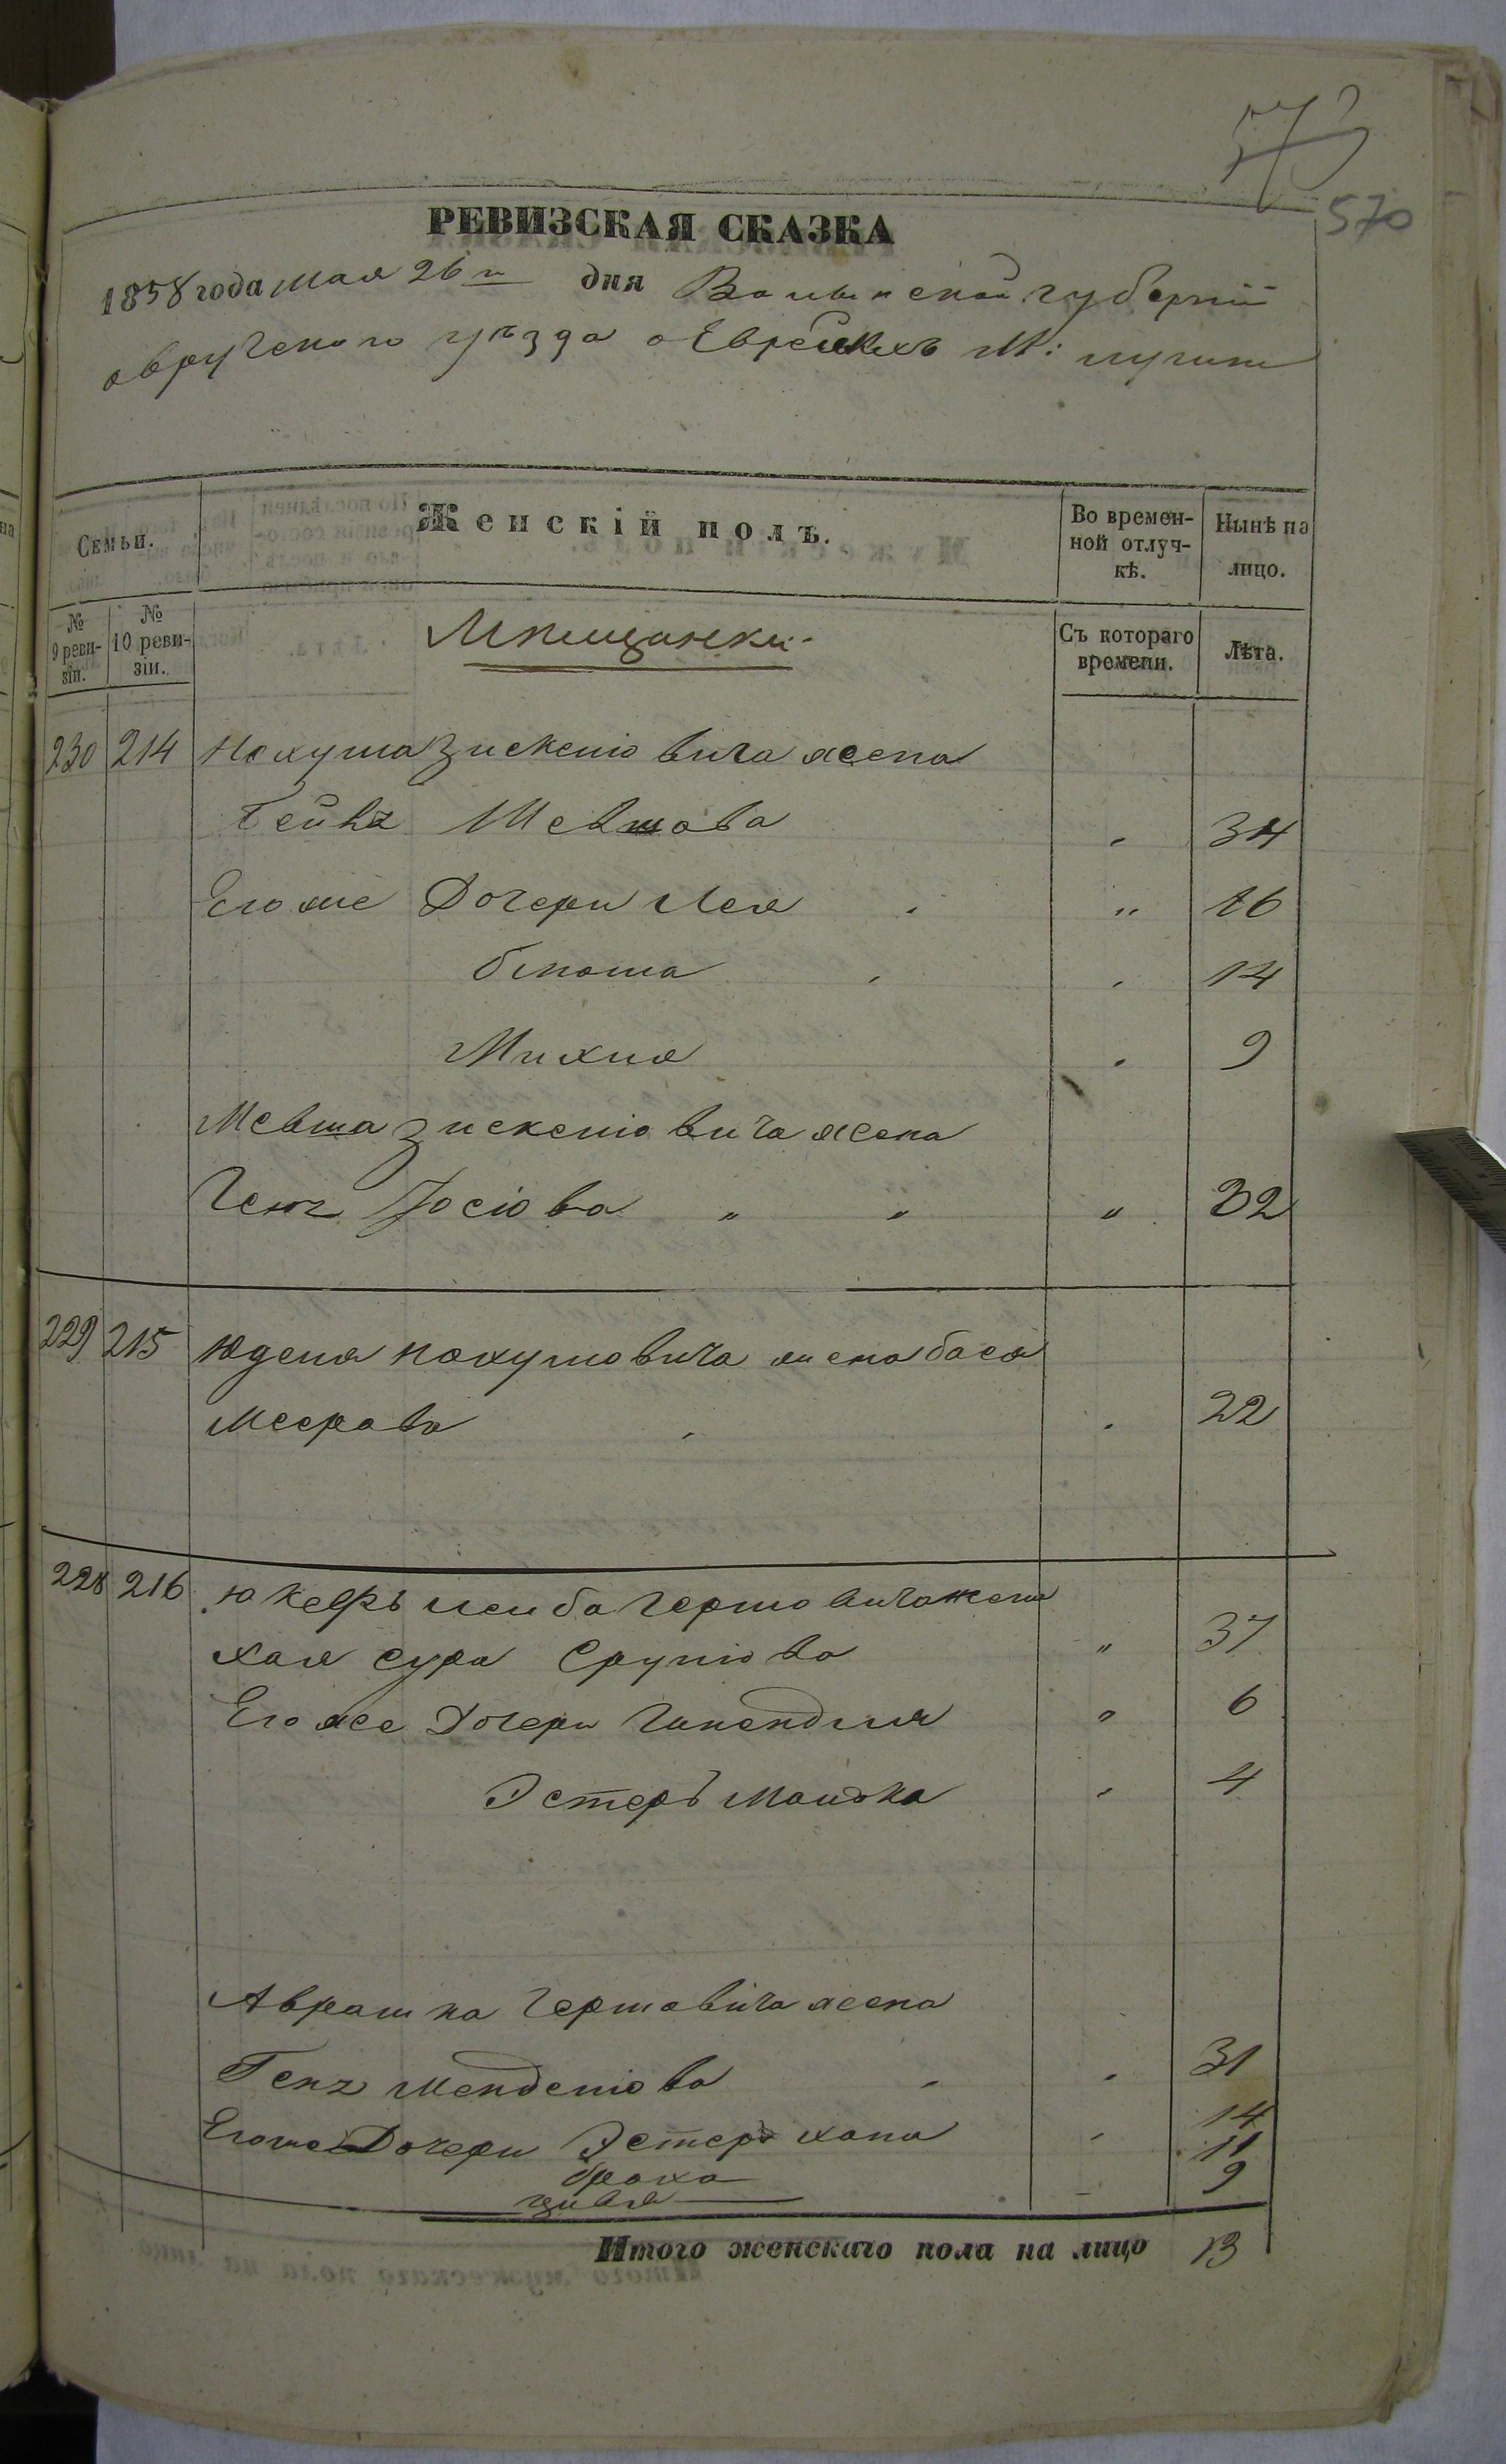 573
570
РЕВИЗСКАЯ СКАЗКА
1858 года мая 26 дня Волынской губерніи
овручского уѣзда о Евреяхъ М: лугинъ
Семьи.
Женскій полъ.
Во времен-
ной отлуч-
кѣ.
Нынѣ на
лицо.
№
9 реви-
зіи.
№
10 реви-
зіи.
Мѣщанки
Съ котораго
времени.
Лѣта.
230 214 Нохума Зискелювича жена
Бейла Мевшова 34
Его же Дочери Лея 16
14
Михля 9
Мевша Зискелювича жена
Геня Іосіова 32
229 215 Юделя Нохумовича жена бася
Меерова 22
228 216 Лейба Гершовича жена
хая сура Срулiова 37
Его же Дочери Шпендля 6
Эстеръ Малка 4
Аврашка Гершовича жена
Геня Менделіова 31
Его же Дочери Эстеръ хана 14
браха 11
цивя 9
Итого женскаго пола на лицо 13